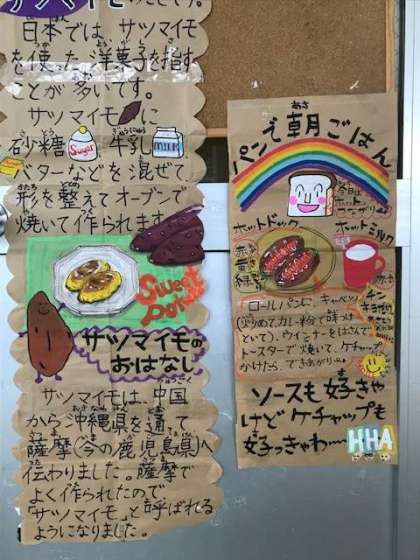 日本では、サツマイモ
を使った洋菓子を指す
ことが多いです。
サツマイモに
砂糖 Sugar 牛乳 MILK
バターなどを混ぜて
形を整えてオーブンで
焼いて作られます
Sweet
Potato
サツマイモの
おはなし
サツマイモは、中国
から沖縄県を通って
薩摩(今の鹿児島県)へ
伝わりました。薩摩で
よく作られたので
「サツマイモ」と呼ばれる
ようになりました。
パンで朝ごはん
ホットドック
ホットミルク
ロールパンに、キャベツ
トースターで焼いて、ケチャップ
かけたら、できあがり
ソースも好きや
けどケチャップも
好っきゃわ…
HHA